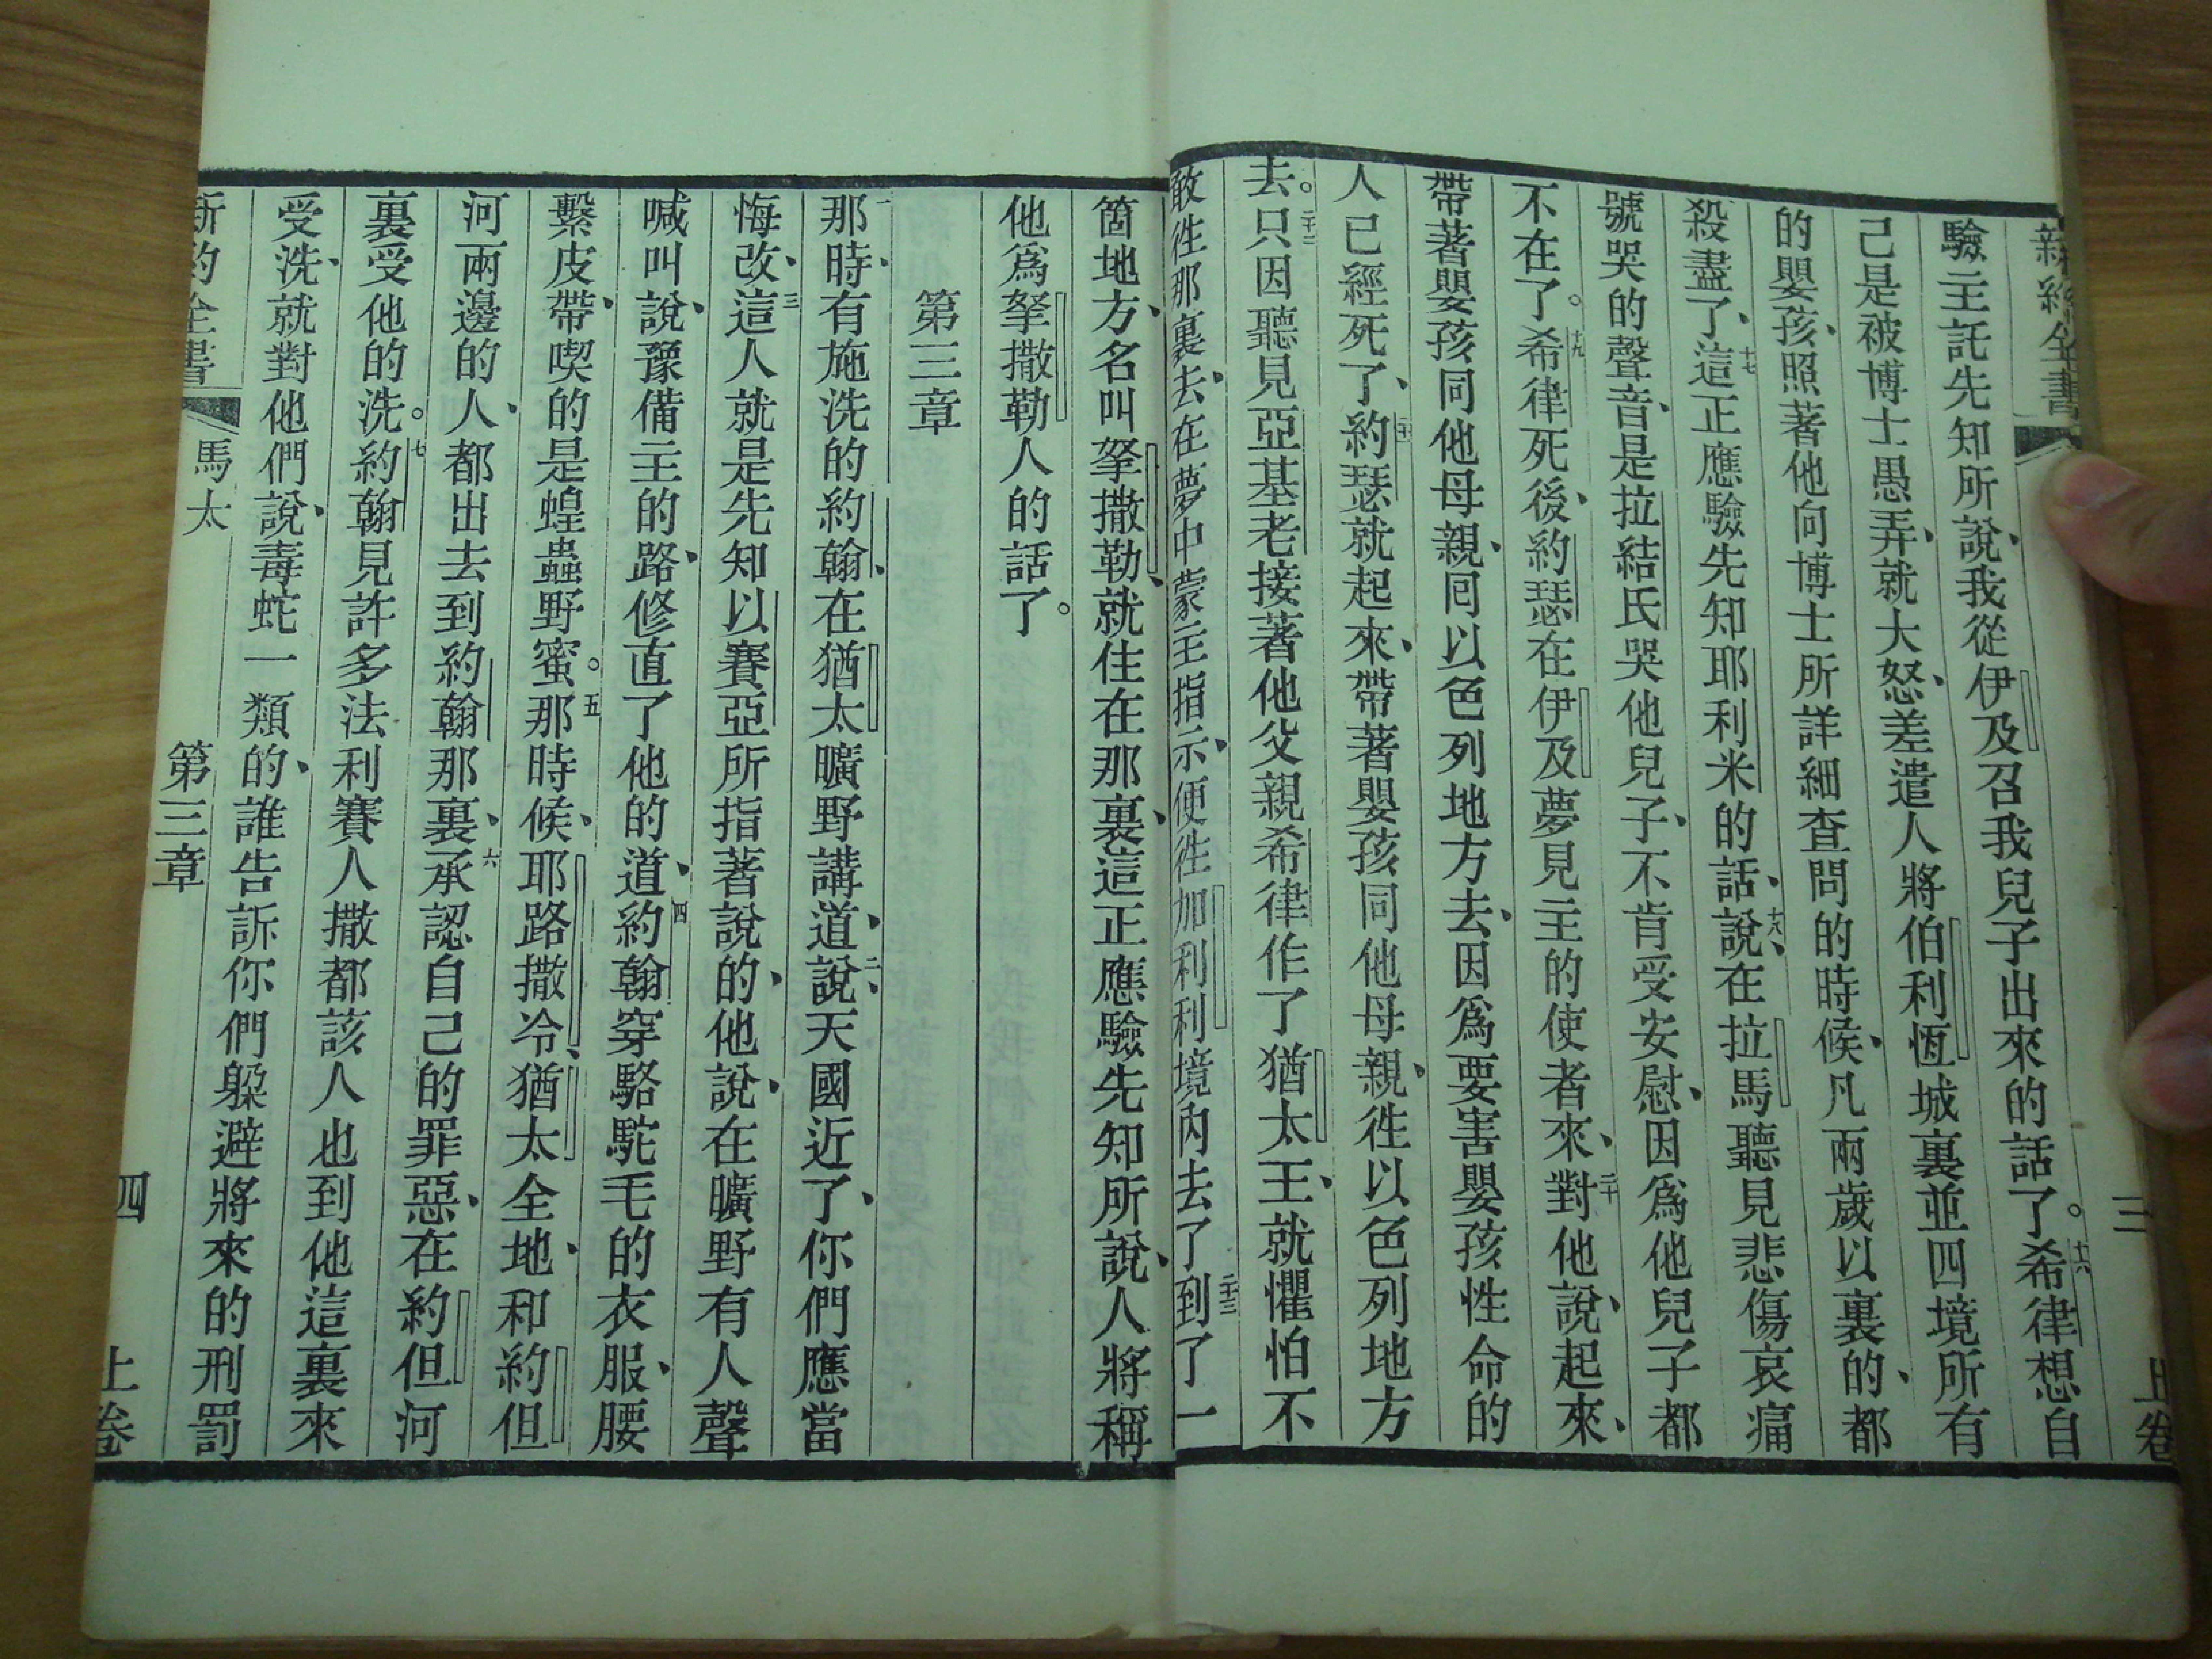 新約全書
三
上卷
驗主託先知所說、我從伊及召我兒子出來的話了。十六希律想自
己是被博士愚弄、就大怒、差遣人將伯利恆城裏並四境所有
的嬰孩、照著他向博士所詳細查問的時候、凡兩歲以裏的、都
殺盡了、十七這正應驗先知耶利米的話、十八說、在拉馬聽見悲傷哀痛
號哭的聲音、是拉結氏哭他兒子、不肯受安慰、因爲他兒子都
不在了。十九希律死後、約瑟在伊及夢見主的使者來、二十對他說、起來、
帶著嬰孩同他母親、囘以色列地方去、因爲要害嬰孩性命的
人已經死了、二十一約瑟就起來、帶著嬰孩同他母親、徃以色列地方
去。二十二只因聽見亞基老接著他父親希律作了猶太王、就懼怕不
敢徃那裏去、在夢中蒙主指示、便徃加利利境內去了、二十三到了一
箇地方、名叫拏撒勒、就住在那裏、這正應驗先知所說、人將稱
他爲拏撒勒人的話了。
第三章
一那時、有施洗的約翰、在猶太曠野講道、二說、天國近了、你們應當
悔改、三這人就是先知以賽亞所指著說的、他說、在曠野有人聲
喊叫說、豫備主的路、修直了他的道、四約翰穿駱駝毛的衣服、腰
繫皮帶、喫的是蝗蟲野蜜。五那時候、耶路撒冷、猶太全地、和約但
河兩邊的人、都出去到約翰那裏、六承認自己的罪惡、在約但河
裏受他的洗。七約翰見許多法利賽人撒都該人也到他這裏來
受洗、就對他們說、毒蛇一類的、誰告訴你們躲避將來的刑罰
新約全書
馬太
第三章
四
上卷